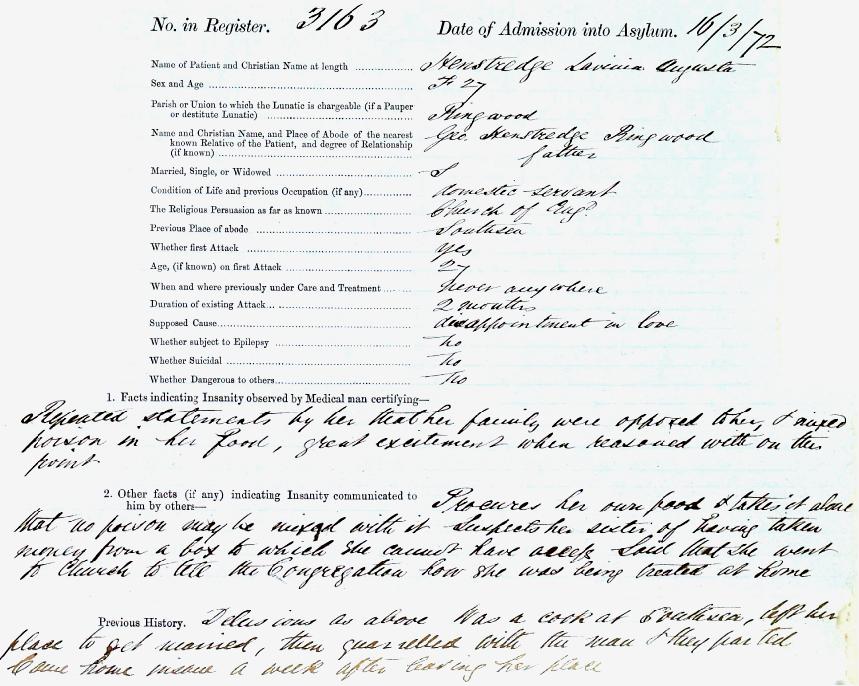 No. in Register. 3163 Date of Admission into Asylum. 16/3/72
Name of Patient and Christian Name at length Henstredge Lavinia Augusta
Sex and Age F 27
Parish or Union to which the Lunatic is chargeable (if a Pauper
or destitute Lunatic) Ringwood
Name and Christian Name, and Place of Abode of the nearest Geo. Henstredge Ringwood
known Relative of the Patient, and degree of Relationship
(if known) father
Married, Single, or Widowed S
Condition of Life and previous Occupation (if any) domestic servant
The Religious Persuasion as far as known Church of Engd.
Previous Place of abode Southsea
Whether first Attack yes
Age, (if known) on first Attack 27
When and where previously under Care and Treatment never anywhere
Duration of existing Attack 2 months
Supposed Cause disappointment in love
Whether subject to Epilepsy no
Whether Suicidal no
Whether Dangerous to others no
1. Facts indicating Insanity observed by Medical man certifying—
Repeated statements by her that her family were opposed to her, & mixed
poison in her food, great excitement when reasoned with on this
point
2. Other facts (if any) indicating Insanity communicated to
him by others— Procures her own food & takes it alone
that no poison may be mixed with it Suspects her sister of having taken
money from a box to which she cannot have access Said that she went
to Church to tell the Congregation how she was being treated at home
Previous History. Delusions as above Was a cook at Southsea, left her
place to get married, then quarrelled with the man & they parted
Came home insane a week after leaving her place